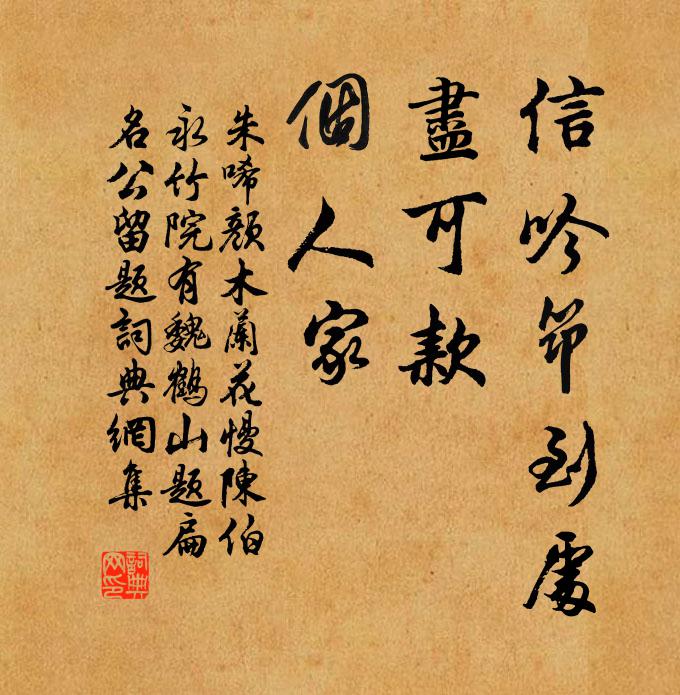 信吟笻到處
盡可款
個人家
朱唏顏木蘭花慢陳伯
永竹院有魏鶴山題扁
名公留題詞典網集
詞典
网印